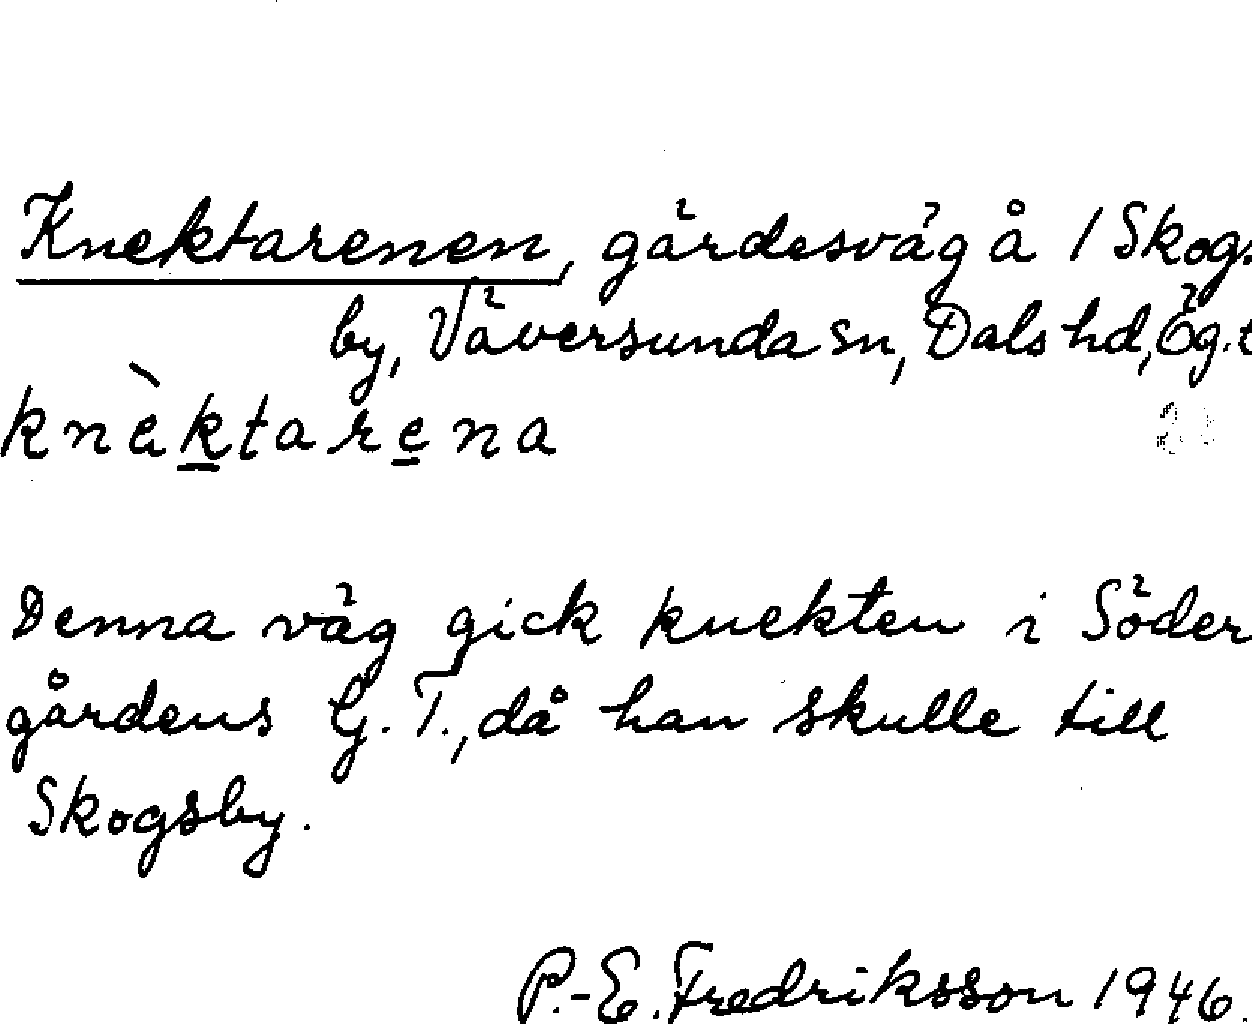 Knektarenen, gärdesväg å 1 Skogs
by, Väversunda sn, Dals hd, Ög.
knèktarena
Denna väg gick knekten i Söder
gårdens G. T., då han skulle till
Skogsby.
P.-E. Fredriksson 1946.